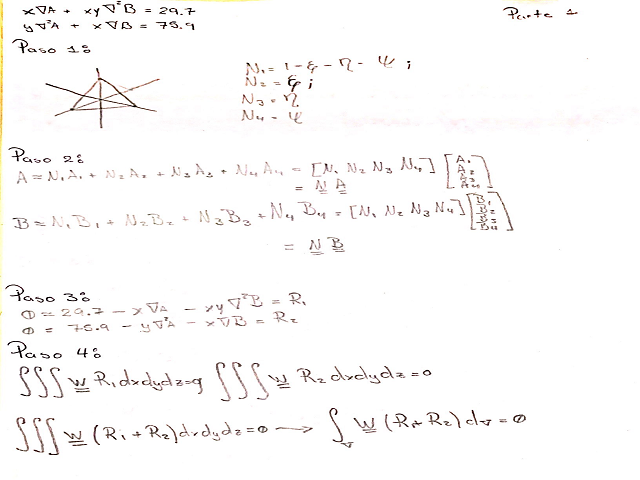 x∇A + xy∇²B = 29.7
Parte 1
y∇²A + x∇B = 75.9
Paso 1:
N₁ = 1 - ξ - η - ψ ;
N₂ = ξ ;
N₃ = η
N₄ = ψ
Paso 2:
A ≈ N₁A₁ + N₂A₂ + N₃A₃ + N₄A₄ = [N₁ N₂ N₃ N₄] [A₁ A₂ A₃ A₄]
= N A
B ≈ N₁B₁ + N₂B₂ + N₃B₃ + N₄B₄ = [N₁ N₂ N₃ N₄] [B₁ B₂ B₃ B₄]
= N B
Paso 3:
0 = 29.7 - x∇A - xy∇²B = R₁
0 = 75.9 - y∇²A - x∇B = R₂
Paso 4:
∭ W R₁ dxdydz = 0 ∭ W R₂ dxdydz = 0
∭ W (R₁ + R₂) dxdydz = 0 → ∫ᵥ W (R₁ + R₂) dv = 0